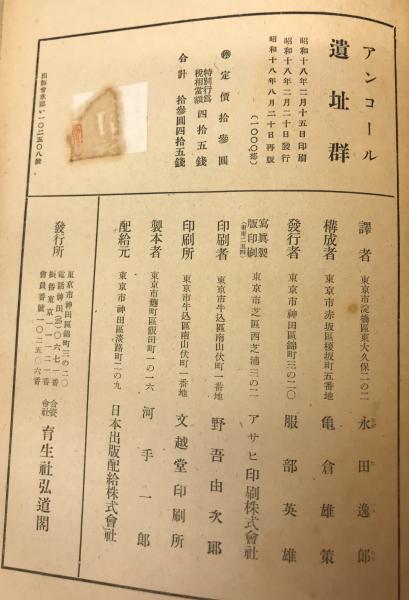 アンコール
遺址群
昭和十八年二月十五日印刷
昭和十八年二月二十日發行
昭和十八年八月二十日再版
(一〇〇〇部)
定價拾參圓
特別行爲税相當額 四拾五錢
合計 拾參圓四拾五錢
出版會承認い一〇二五〇八號
譯者 東京市淀橋區東大久保二の二 永田逸郎
構成者 東京市赤坂區榎坂町五番地 亀倉雄策
發行者 東京市神田區錦町三の二〇 服部英雄
寫眞製版印刷 東京市芝區西芝浦三の二 アサヒ印刷株式會社
印刷者 東京市牛込區南山伏町一番地 野吾由次郎
印刷所 東京市牛込區南山伏町一番地 文越堂印刷所
製本者 東京市麴町區飯田町一の一六 河手一郎
配給元 東京市神田區淡路町二の九 日本出版配給株式會社
發行所
東京市神田區錦町三の二〇
合資會社 育生社弘道閣